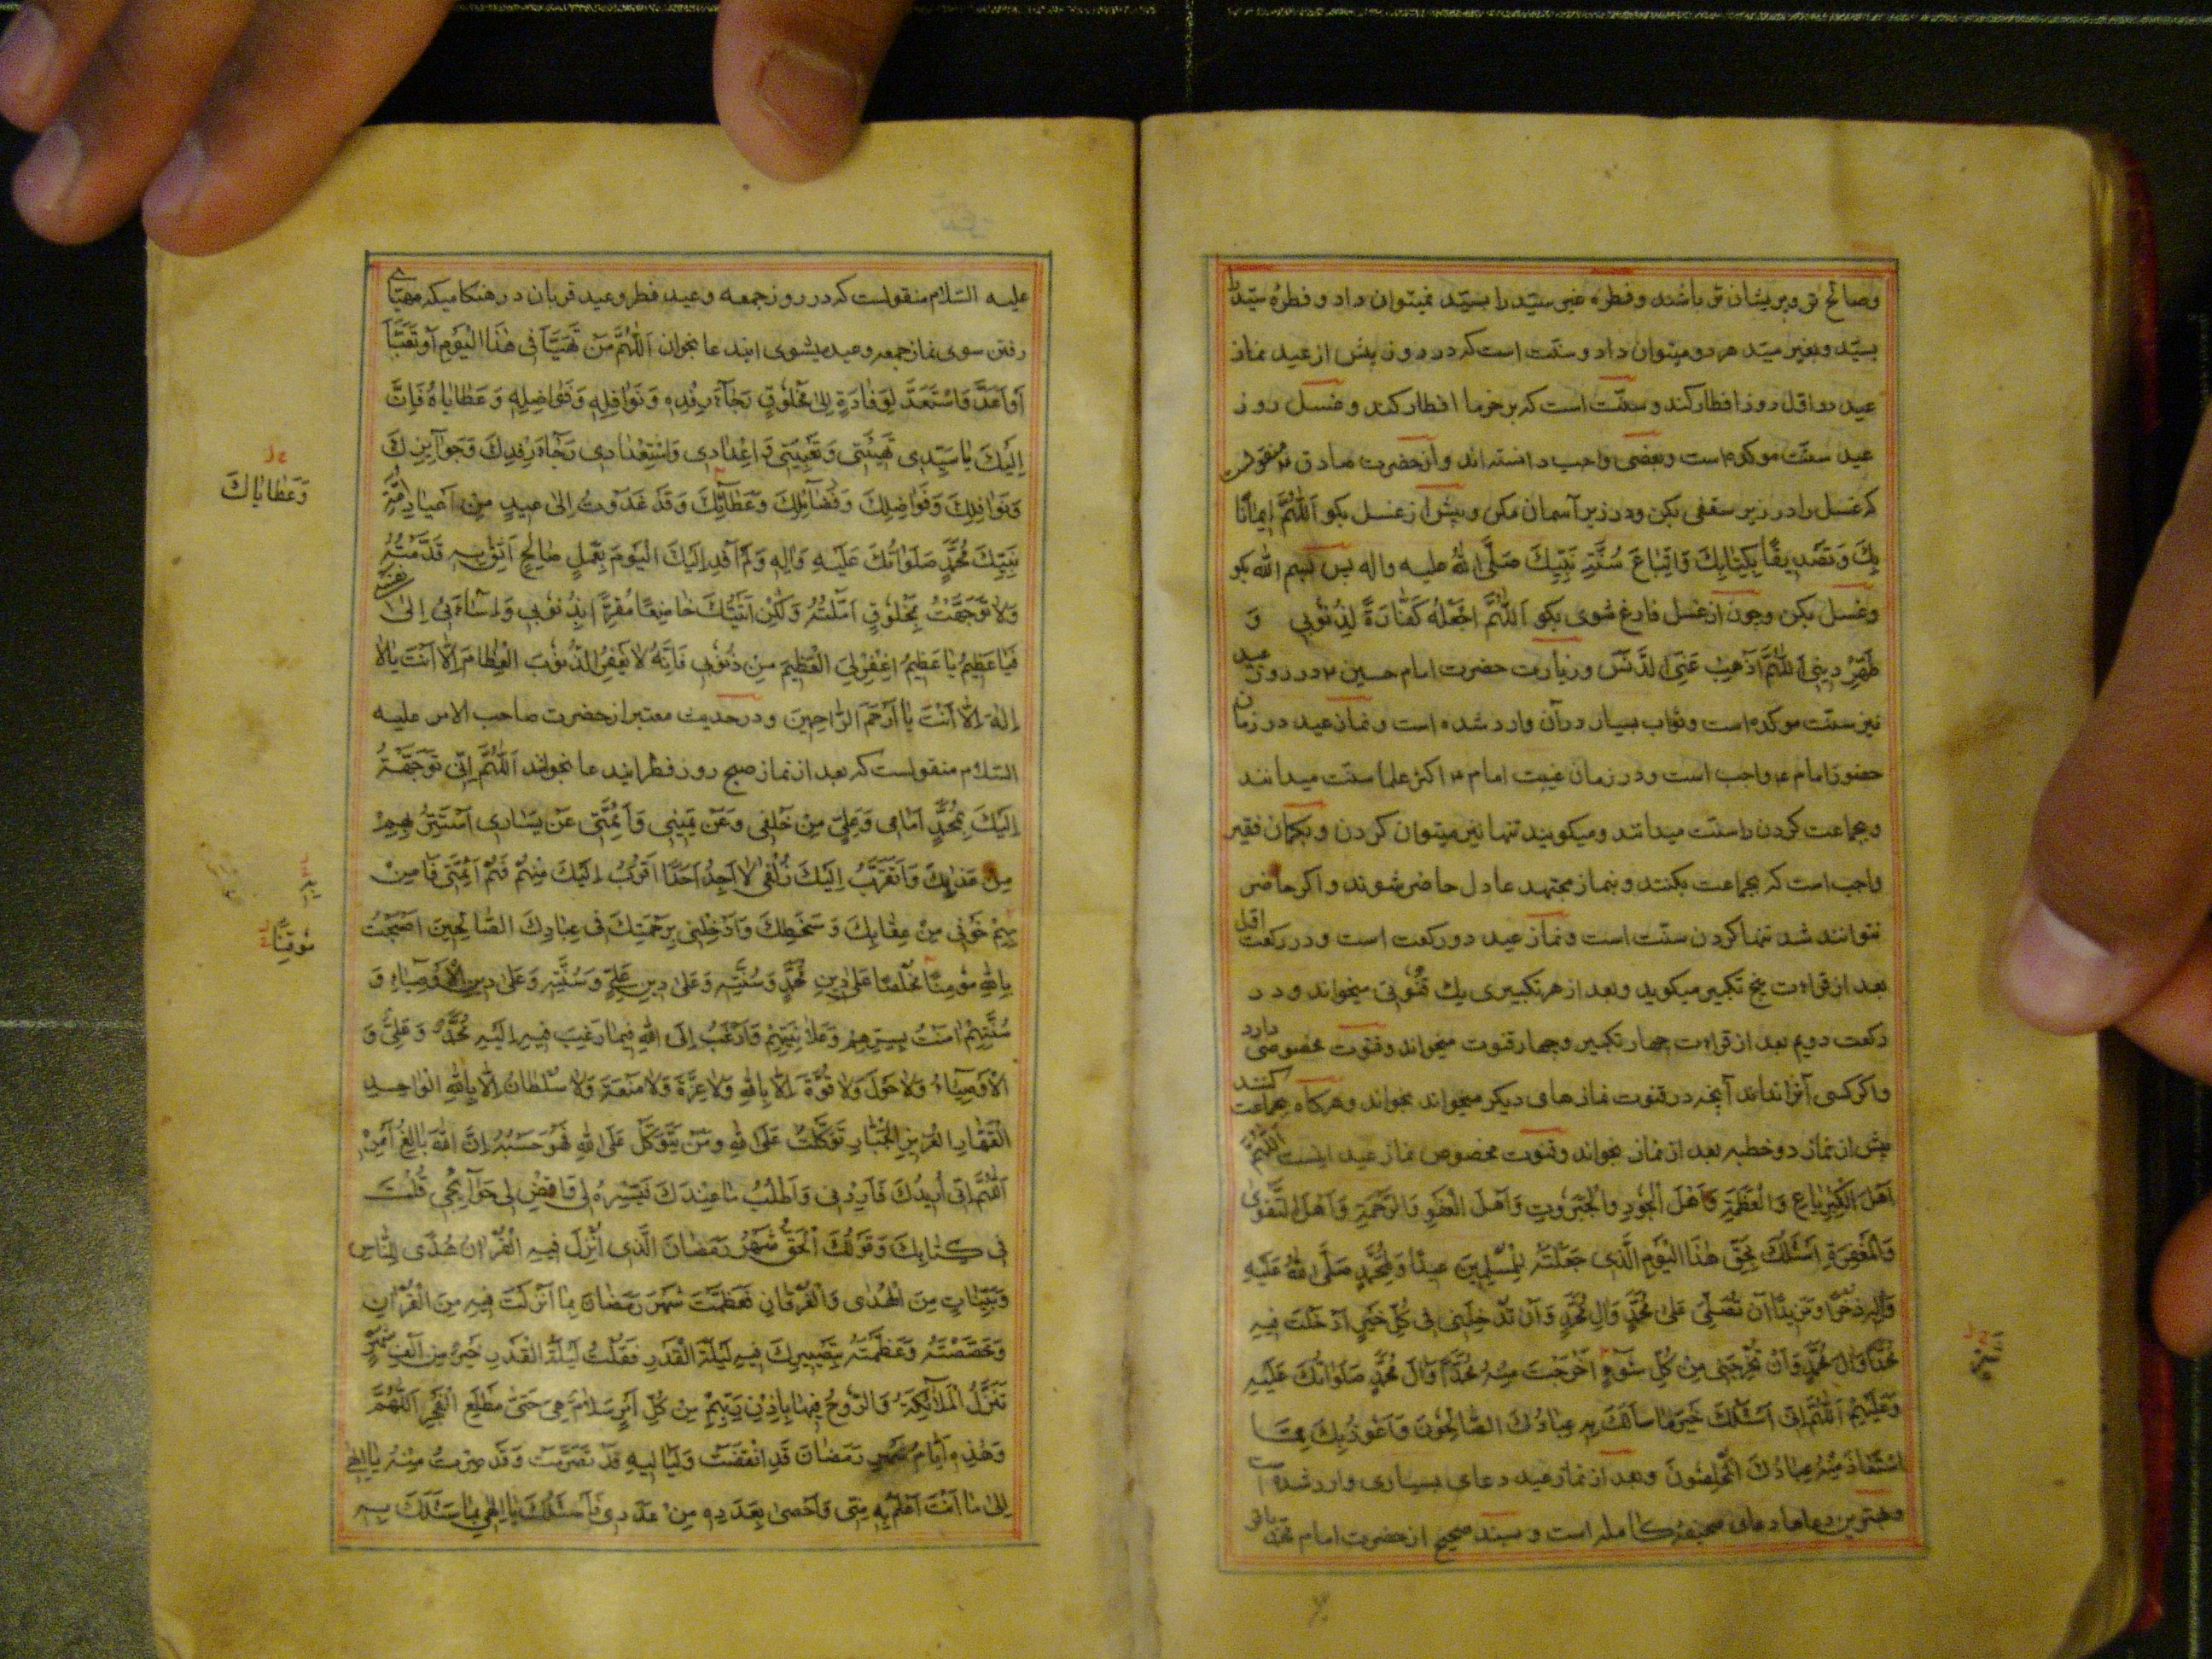 وصالح تر و پریشان تر باشند و فطرهٔ غیر سیّد را بسیّد نمیتوان داد و فطرهٔ سیّد را
بسیّد و بغیر سیّد هر دو میتوان داد و سنّت است که در روز پیش از عید نماز
عید در اوّل روز افطار کند و سنّت است که بر خرما افطار کند و غسل روز
عید سنّت موکده است و بعضی واجب دانسته اند و از حضرت صادق ع منقولست
که غسل را در زیر سقفی بکن و در زیر آسمان مکن و پیش از غسل بکو اَللّٰهُمَّ اِیمَانًا
بِكَ وَتَصْدِیقًا بِكِتَابِكَ وَاتِّبَاعَ سُنَّةِ نَبِیِّكَ صَلَّی اللّٰهُ علیه واله پس بسم الله بکو
وغسل بکن وچون از غسل فارغ شوی بکو اَللّٰهُمَّ اجْعَلْهُ كَفَّارَةً لِذُنُوبِی وَ
طَهِّرْ دِینِی اَللّٰهُمَّ اَذْهِبْ عَنِّی الدَّنَسَ وزیارت حضرت امام حسین ع در روز عید
نیز سنّت موکده است وثواب بسیار در آن وارد شده است و نماز عید در زمان
حضور امام ع واجب است ودر زمان غیبت امام ع اکثر علما سنّت میدانند
وبجماعت کردن را سنّت میدانند ومیکویند تنها نیز میتوان کردن و بکمان فقیر
واجب است که بجماعت بکنند و بنماز مجتهد عادل حاضر شوند و اکر حاضر
نتوانند شد تنها کردن سنّت است و نماز عید دو رکعت است و در رکعت اوّل
بعد از قراءت پنج تکبیر میکوید وبعد از هر تکبیری یك قنوتی میخواند ودر
رکعت دویم بعد از قراءت چهار تکبیر وچهار قنوت میخواند وقنوت مخصوصی دارد
واکر کسی آنرا نداند آنچه در قنوت نمازهای دیکر میخواند بخواند وهرکاه بجماعت کنند
پیش از نماز دو خطبه بعد از نماز بخواند وقنوت مخصوص نماز عید اینست اَللّٰهُمَّ
اَهْلَ الْكِبْرِیَاءِ وَالْعَظَمَةِ وَاَهْلَ الْجُودِ وَالْجَبَرُوتِ وَاَهْلَ الْعَفْوِ وَالرَّحْمَةِ وَاَهْلَ التَّقْوٰی
وَالْمَغْفِرَةِ اَسْئَلُكَ بِحَقِّ هٰذَا الْیَوْمِ الَّذِی جَعَلْتَهُ لِلْمُسْلِمِینَ عِیدًا وَلِمُحَمَّدٍ صَلَّی اللّٰهُ عَلَیْهِ
وَاٰلِهِ ذُخْرًا وَمَزِیدًا اَنْ تُصَلِّیَ عَلٰی مُحَمَّدٍ وَاٰلِ مُحَمَّدٍ وَاَنْ تُدْخِلَنِی فِی كُلِّ خَیْرٍ اَدْخَلْتَ فِیهِ
مُحَمَّدًا وَاٰلَ مُحَمَّدٍ وَاَنْ تُخْرِجَنِی مِنْ كُلِّ سُوۤءٍ اَخْرَجْتَ مِنْهُ مُحَمَّدًا وَاٰلَ مُحَمَّدٍ صَلَوَاتُكَ عَلَیْهِ
وَعَلَیْهِمْ اَللّٰهُمَّ اِنِّی اَسْئَلُكَ خَیْرَ مَا سَاَلَكَ بِهِ عِبَادُكَ الصَّالِحُونَ وَاَعُوذُ بِكَ مِمَّا
اسْتَعَاذَ مِنْهُ عِبَادُكَ الْمُخْلِصُونَ وبعد از نماز عید دعای بسیاری وارد شده است
وبهترین دعاها دعای صحیفهٔ کامله است و بسند صحیح از حضرت امام محمّد باقر
علیه السّلام منقولست که در روز جمعه وعید فطر وعید قربان در هنکامیکه مهیّای
رفتن سوی نماز جمعه وعید میشوی این دعا بخوان اَللّٰهُمَّ مَنْ تَهَیَّأَ فِی هٰذَا الْیَوْمِ اَوْ تَعَبَّأَ
اَوْ اَعَدَّ وَاسْتَعَدَّ لِوِفَادَةٍ اِلٰی مَخْلُوقٍ رَجَاۤءَ رِفْدِهِ وَنَوَافِلِهِ وَفَوَاضِلِهِ وَعَطَایَاهُ فَاِنَّ
اِلَیْكَ یَا سَیِّدِی تَهْیِئَتِی وَتَعْبِیَتِی وَاِعْدَادِی وَاسْتِعْدَادِی رَجَاۤءَ رِفْدِكَ وَجَوَاۤئِزِكَ
وَنَوَافِلِكَ وَفَوَاضِلِكَ وَفَضَاۤئِلِكَ وَعَطَاۤئِكَ وَقَدْ غَدَوْتُ اِلٰی عِیدٍ مِنْ اَعْیَادِ اُمَّةِ
وَعَطَایَاكَ
نَبِیِّكَ مُحَمَّدٍ صَلَوَاتُكَ عَلَیْهِ وَاٰلِهِ وَلَمْ اَفِدْ اِلَیْكَ الْیَوْمَ بِعَمَلٍ صَالِحٍ اَثِقُ بِهِ قَدَّمْتُهُ
وَلَا تَوَجَّهْتُ بِمَخْلُوقٍ اَمَّلْتُهُ وَلٰكِنْ اَتَیْتُكَ خَاضِعًا مُقِرًّا بِذُنُوبِی وَاِسَاۤءَتِی اِلٰی نفسی
فَیَا عَظِیمُ یَا عَظِیمُ اغْفِرْ لِیَ الْعَظِیمَ مِنْ ذُنُوبِی فَاِنَّهُ لَا یَغْفِرُ الذُّنُوبَ الْعِظَامَ اِلَّا اَنْتَ یَا لَا
اِلٰهَ اِلَّا اَنْتَ یَا اَرْحَمَ الرَّاحِمِینَ ودر حدیث معتبر از حضرت صاحب الامر علیه
السّلام منقولست که بعد از نماز صبح روز فطر این دعا بخواند اَللّٰهُمَّ اِنِّی تَوَجَّهْتُ
اِلَیْكَ بِمُحَمَّدٍ اَمَامِی وَعَلِیٍّ مِنْ خَلْفِی وَعَنْ یَمِینِی وَاَئِمَّتِی عَنْ یَسَارِی اَسْتَتِرُ بِهِمْ
مِنْ عَذَابِكَ وَاَتَقَرَّبُ اِلَیْكَ زُلْفٰی لَا اَجِدُ اَحَدًا اَقْرَبَ اِلَیْكَ مِنْهُمْ فَهُمْ اَئِمَّتِی فَاٰمِنْ
بِهِمْ خَوْفِی مِنْ عِقَابِكَ وَسَخَطِكَ وَاَدْخِلْنِی بِرَحْمَتِكَ فِی عِبَادِكَ الصَّالِحِینَ اَصْبَحْتُ
مُوقِنًا
بِاللّٰهِ مُؤْمِنًا مُخْلِصًا عَلٰی دِینِ مُحَمَّدٍ وَسُنَّتِهِ وَعَلٰی دِینِ عَلِیٍّ وَسُنَّتِهِ وَعَلٰی دِینِ الْاَوْصِیَاۤءِ وَ
سُنَّتِهِمْ اٰمَنْتُ بِسِرِّهِمْ وَعَلَانِیَتِهِمْ وَاَرْغَبُ اِلَی اللّٰهِ فِیمَا رَغِبَ فِیهِ اِلَیْهِ مُحَمَّدٌ وَعَلِیٌّ وَ
الْاَوْصِیَاۤءُ وَلَا حَوْلَ وَلَا قُوَّةَ اِلَّا بِاللّٰهِ وَلَا عِزَّةَ وَلَا مَنَعَةَ وَلَا سُلْطَانَ اِلَّا بِاللّٰهِ الْوَاحِدِ
الْقَهَّارِ الْعَزِیزِ الْجَبَّارِ تَوَكَّلْتُ عَلَی اللّٰهِ وَمَنْ یَتَوَكَّلْ عَلَی اللّٰهِ فَهُوَ حَسْبُهُ اِنَّ اللّٰهَ بَالِغُ اَمْرِهِ
اَللّٰهُمَّ اِنِّی اُرِیدُكَ فَاَرِدْنِی وَاَطْلُبُ مَا عِنْدَكَ فَیَسِّرْهُ لِی وَاقْضِ لِی حَوَاۤئِجِی قُلْتَ
فِی كِتَابِكَ وَقَوْلُكَ الْحَقُّ شَهْرُ رَمَضَانَ الَّذِی اُنْزِلَ فِیهِ الْقُرْاٰنُ هُدًی لِلنَّاسِ
وَبَیِّنَاتٍ مِنَ الْهُدٰی وَالْفُرْقَانِ فَعَظَّمْتَ شَهْرَ رَمَضَانَ بِمَا اَنْزَلْتَ فِیهِ مِنَ الْقُرْاٰنِ
وَخَصَّصْتَهُ وَعَظَّمْتَهُ بِتَصْیِیرِكَ فِیهِ لَیْلَةَ الْقَدْرِ فَقُلْتَ لَیْلَةُ الْقَدْرِ خَیْرٌ مِنْ اَلْفِ شَهْرٍ
تَنَزَّلُ الْمَلَاۤئِكَةُ وَالرُّوحُ فِیهَا بِاِذْنِ رَبِّهِمْ مِنْ كُلِّ اَمْرٍ سَلَامٌ هِیَ حَتّٰی مَطْلَعِ الْفَجْرِ اَللّٰهُمَّ
وَهٰذِهِ اَیَّامُ شَهْرِ رَمَضَانَ قَدِ انْقَضَتْ وَلَیَالِیهِ قَدْ تَصَرَّمَتْ وَقَدْ صِرْتُ مِنْهُ یَا اِلٰهِی
اِلٰی مَا اَنْتَ اَعْلَمُ بِهِ مِنِّی وَاَحْصٰی بِعَدَدِهِ مِنْ عَدَدِی فَاَسْئَلُكَ یَا اِلٰهِی بِمَا سَئَلَكَ بِهِ